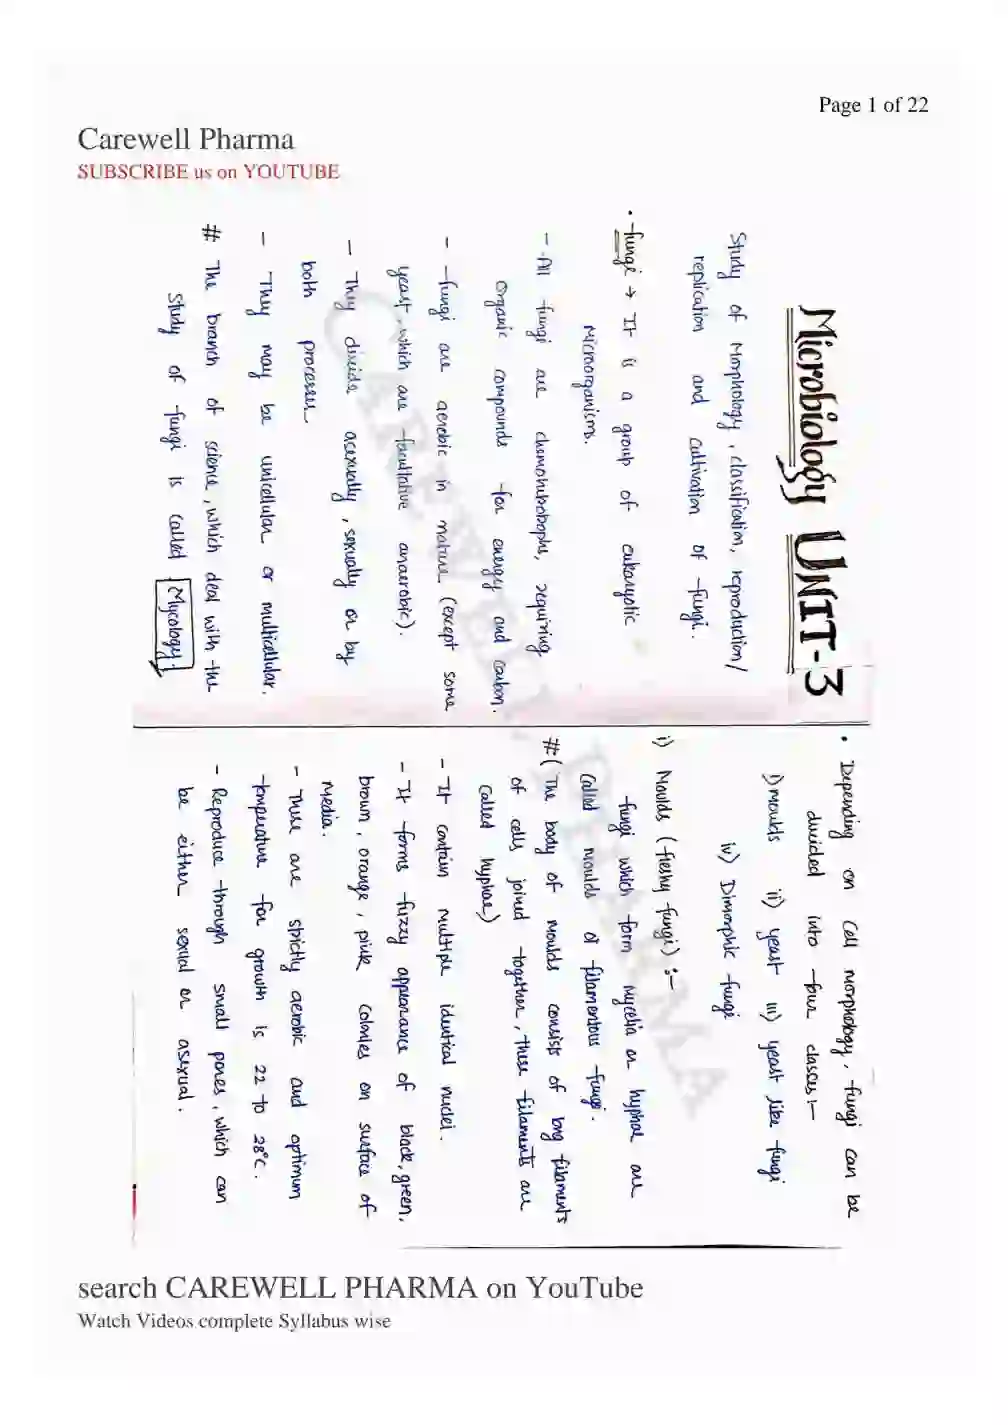 Page 1 of 22
Carewell Pharma
SUBSCRIBE us on YOUTUBE
Microbiology UNIT-3
Study of Morphology, classification, reproduction/
replication and cultivation of fungi.
• fungi → It is a group of eukaryotic
microorganisms.
- All fungi are chemoheterotrophs, requiring
organic compounds for energy and carbon.
- fungi are aerobic in nature (except some
yeast, which are facultative anaerobic).
- They divide asexually, sexually or by
both processes
- They may be unicellular or multicellular.
# The branch of science, which deal with the
study of fungi is called Mycology
• Depending on cell morphology, fungi can be
divided into four classes:-
i) moulds ii) yeast iii) yeast like fungi
iv) Dimorphic fungi
i) Moulds (fleshy fungi) :-
fungi which form mycelia or hyphae are
called moulds or filamentous fungi.
#(The body of moulds consists of long filaments
of cells joined together, these filaments are
called hyphae)
- It contain multiple identical nuclei.
- It forms fuzzy appearance of black, green,
brown, orange, pink colonies on surface of
media.
- These are strictly aerobic and optimum
temperature for growth is 22 to 28°C.
- Reproduce through small pores, which can
be either sexual or asexual.
CAREWELL PHARMA
search CAREWELL PHARMA on YouTube
Watch Videos complete Syllabus wise